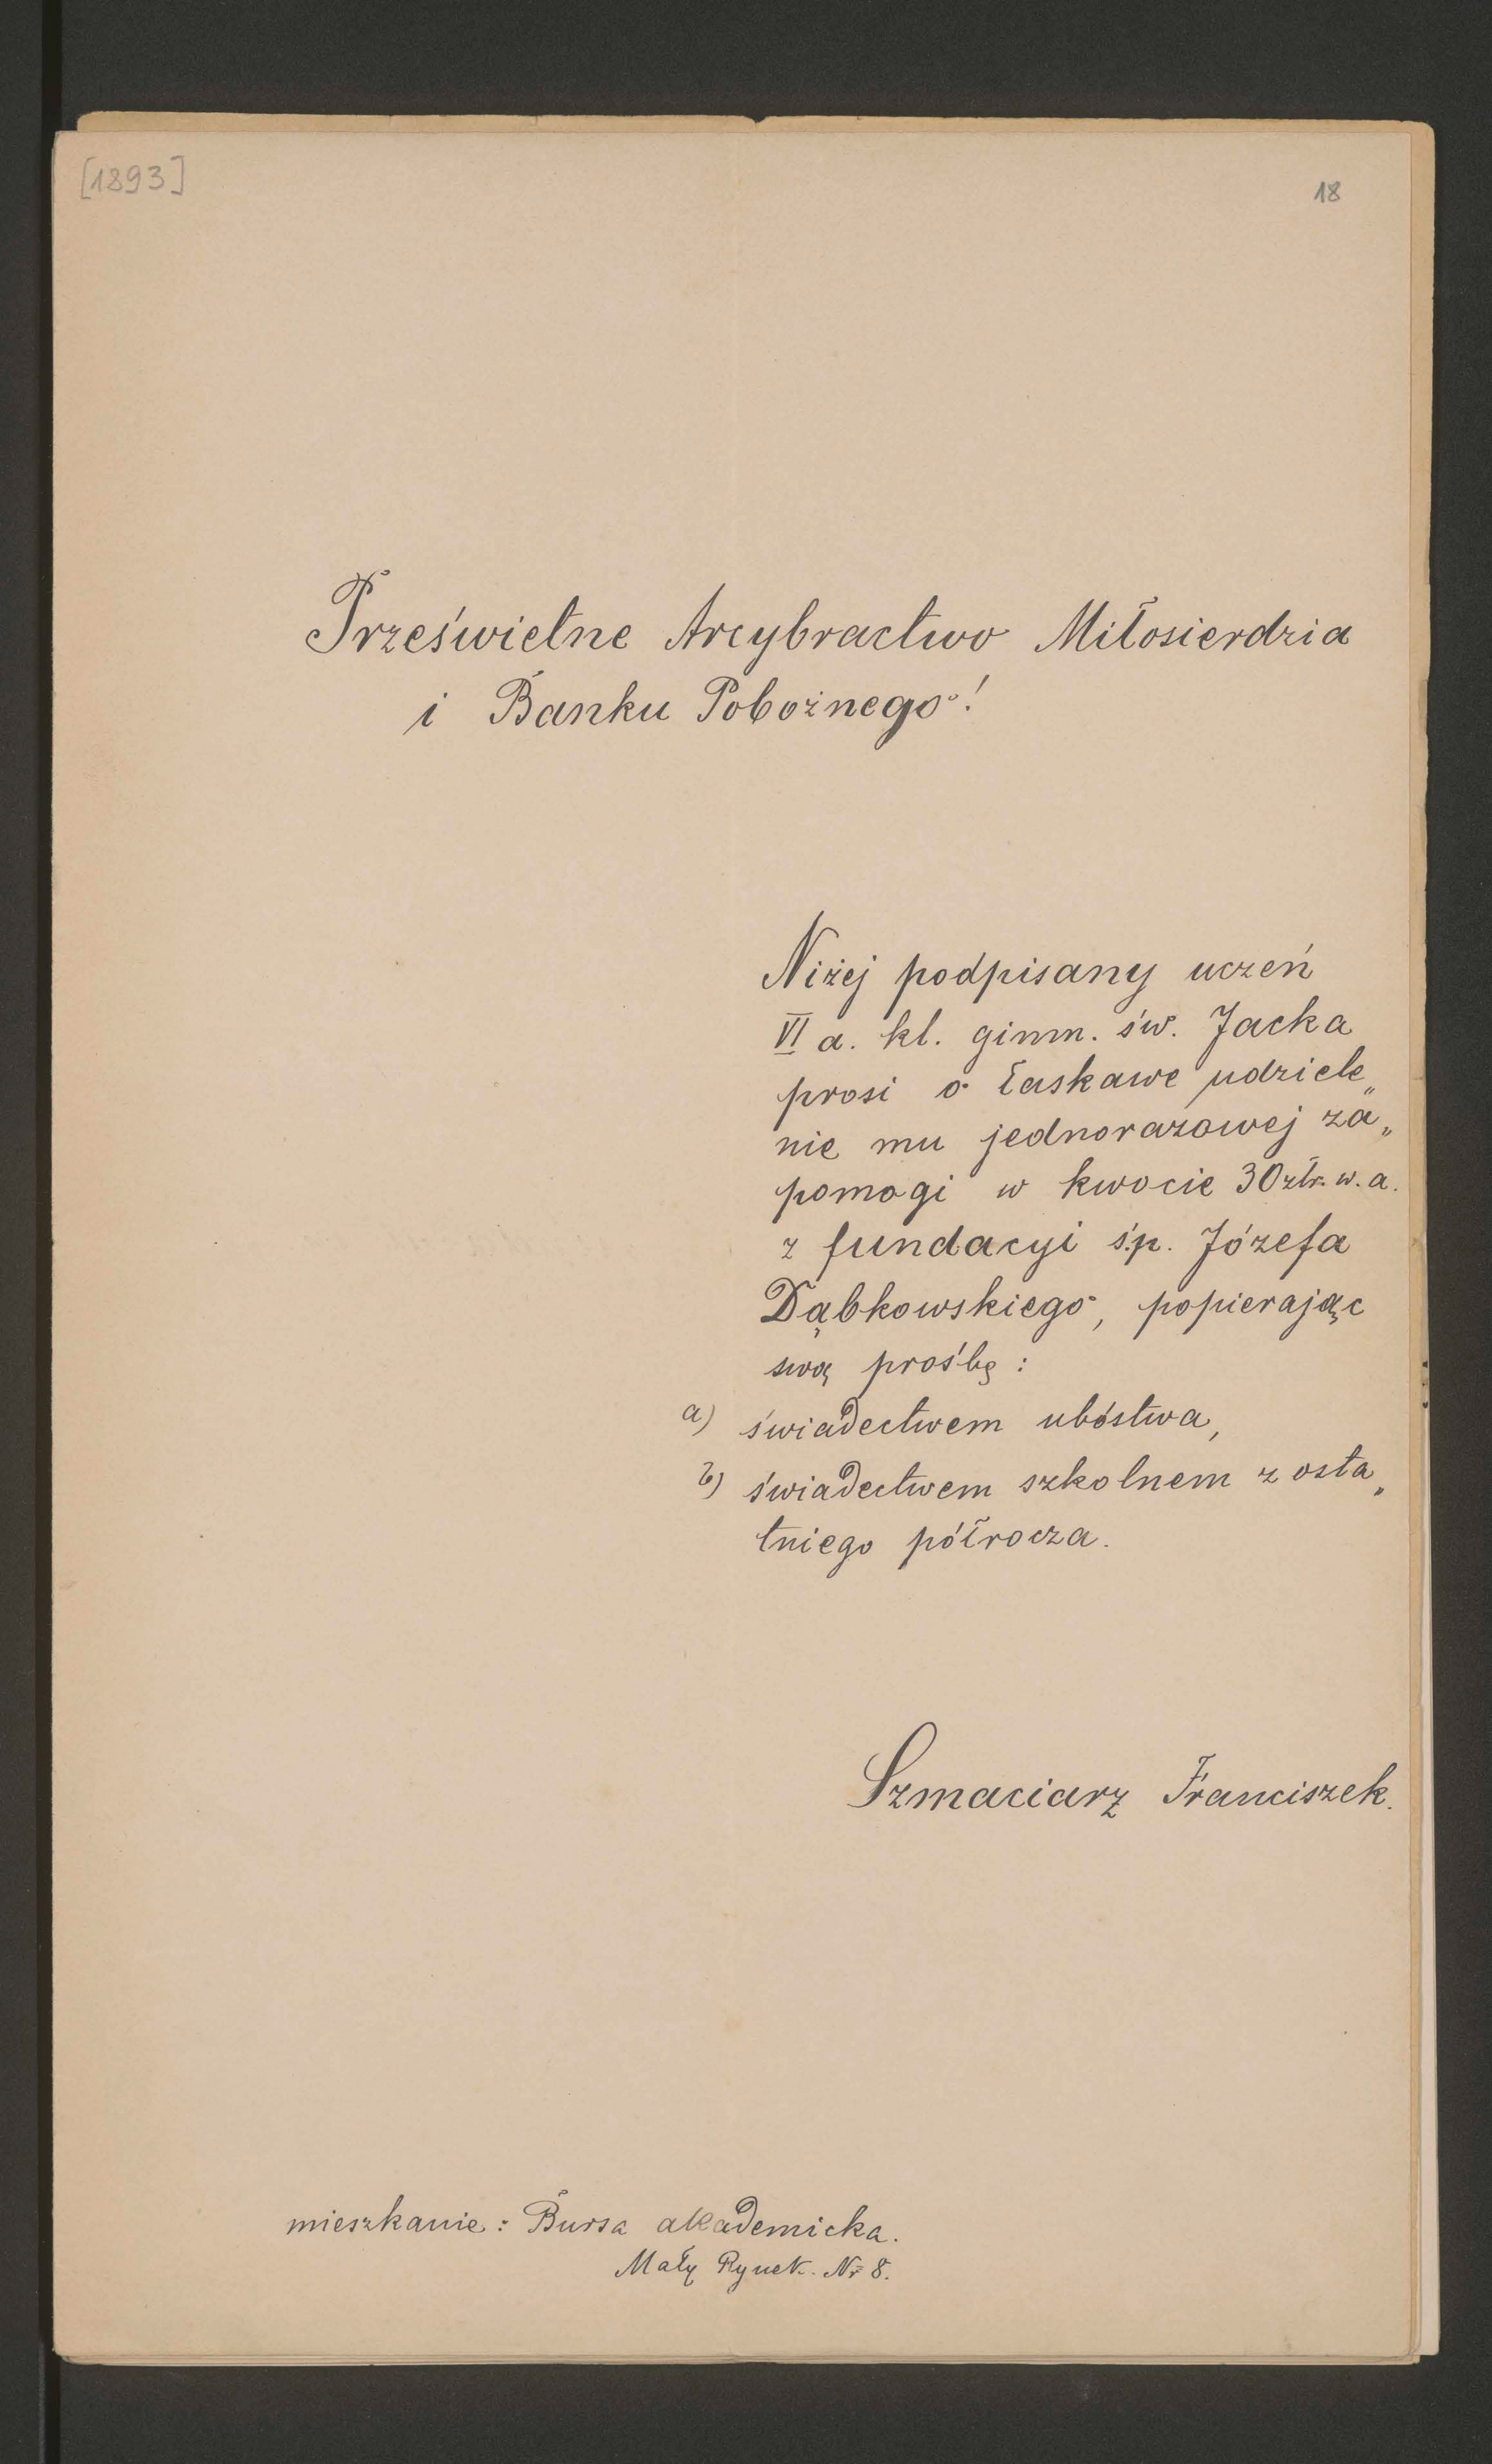 [1893]
18
Prześwietne Arcybractwo Miłosierdzia
i Banku Pobożnego!
Niżej podpisany uczeń
VI a. kl. gimn. św. Jacka
prosi o łaskawe udziele„
nie mu jednorazowej za„
pomogi w kwocie 30 złr. w. a.
z fundacyi ś.p. Józefa
Dąbkowskiego, popierając
swą prośbę :
a) świadectwem ubóstwa,
b) świadectwem szkolnem z osta„
tniego półrocza.
Szmaciarz Franciszek.
mieszkanie: Bursa akademicka.
Mały Rynek. Nr 8.